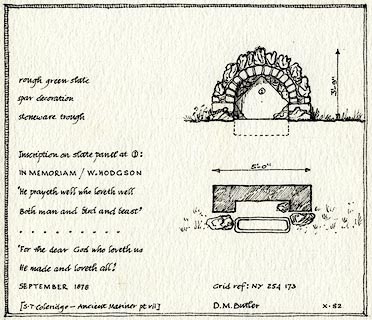 rough green slate
spar decoration
stoneware trough
①
3'-9"
Inscription on slate panel at ①:
IN MEMORIAM / W. HODGSON
'He prayeth well who loveth well
Both man and bird and beast'
- - - - - - - - -
'For the dear God who loveth us
He made and loveth all!
SEPTEMBER 1878
[S·T Coleridge – Ancient Mariner pt vii]
5'-0"
Grid ref: NY 254 173
D.M. Butler
X·82